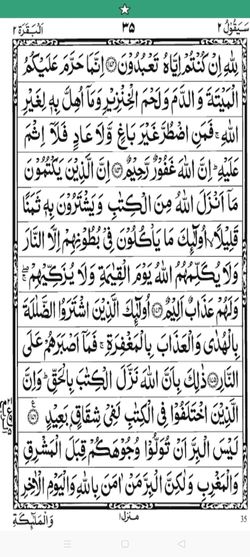 سَيَقُوْلُ ٢ ٣٥ اَلْبَقَرَة ٢
لِلّٰهِ اِنْ كُنْتُمْ اِيَّاهُ تَعْبُدُوْنَ ﴿١٧٢﴾ اِنَّمَا حَرَّمَ عَلَيْكُمُ
الْمَيْتَةَ وَ الدَّمَ وَ لَحْمَ الْخِنْزِيْرِ وَ مَاۤ اُهِلَّ بِهٖ لِغَيْرِ
اللّٰهِ ۚ فَمَنِ اضْطُرَّ غَيْرَ بَاغٍ وَّ لَا عَادٍ فَلَاۤ اِثْمَ
عَلَيْهِ ؕ اِنَّ اللّٰهَ غَفُوْرٌ رَّحِيْمٌ ﴿١٧٣﴾ اِنَّ الَّذِيْنَ يَكْتُمُوْنَ
مَاۤ اَنْزَلَ اللّٰهُ مِنَ الْكِتٰبِ وَ يَشْتَرُوْنَ بِهٖ ثَمَنًا
قَلِيْلًا ۙ اُولٰٓئِكَ مَا يَاْكُلُوْنَ فِيْ بُطُوْنِهِمْ اِلَّا النَّارَ
وَ لَا يُكَلِّمُهُمُ اللّٰهُ يَوْمَ الْقِيٰمَةِ وَ لَا يُزَكِّيْهِمْ ۖۚ
وَ لَهُمْ عَذَابٌ اَلِيْمٌ ﴿١٧٤﴾ اُولٰٓئِكَ الَّذِيْنَ اشْتَرَوُا الضَّلٰلَةَ
بِالْهُدٰى وَ الْعَذَابَ بِالْمَغْفِرَةِ ۚ فَمَاۤ اَصْبَرَهُمْ عَلَى
النَّارِ ﴿١٧٥﴾ ذٰلِكَ بِاَنَّ اللّٰهَ نَزَّلَ الْكِتٰبَ بِالْحَقِّ ؕ وَ اِنَّ
الَّذِيْنَ اخْتَلَفُوْا فِي الْكِتٰبِ لَفِيْ شِقَاقٍۭ بَعِيْدٍ ﴿١٧٦﴾
لَيْسَ الْبِرَّ اَنْ تُوَلُّوْا وُجُوْهَكُمْ قِبَلَ الْمَشْرِقِ
وَ الْمَغْرِبِ وَ لٰكِنَّ الْبِرَّ مَنْ اٰمَنَ بِاللّٰهِ وَ الْيَوْمِ الْاٰخِرِ
وَالْمَلٰٓئِكَةِ
منزل١
35